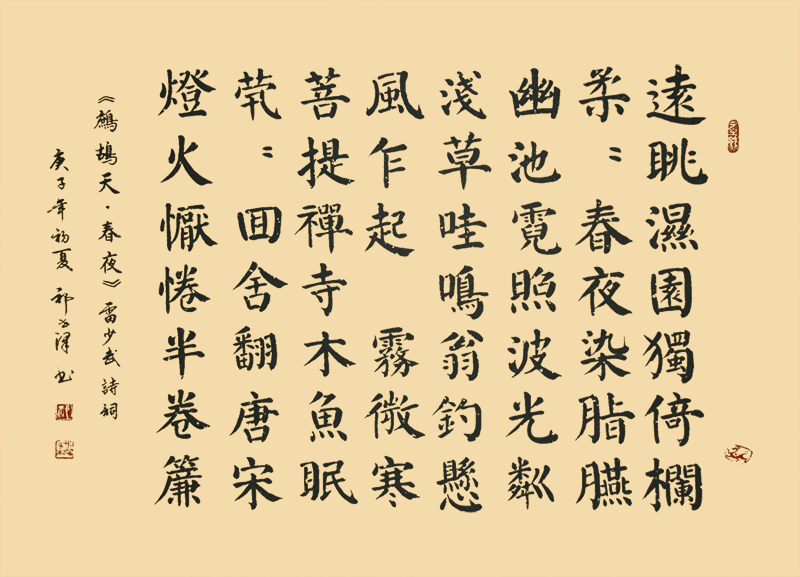 遠眺濕園獨倚欄
柔〻春夜染脂臙
幽池霓照波光粼
淺草哇鳴翁釣懸
風乍起 霧微寒
菩提禪寺木魚眠
茕〻囬舍翻唐宋
燈火懨惓半卷簾
《鷓鴣天·春夜》雷少武詩詞
庚子年初夏 祁 书